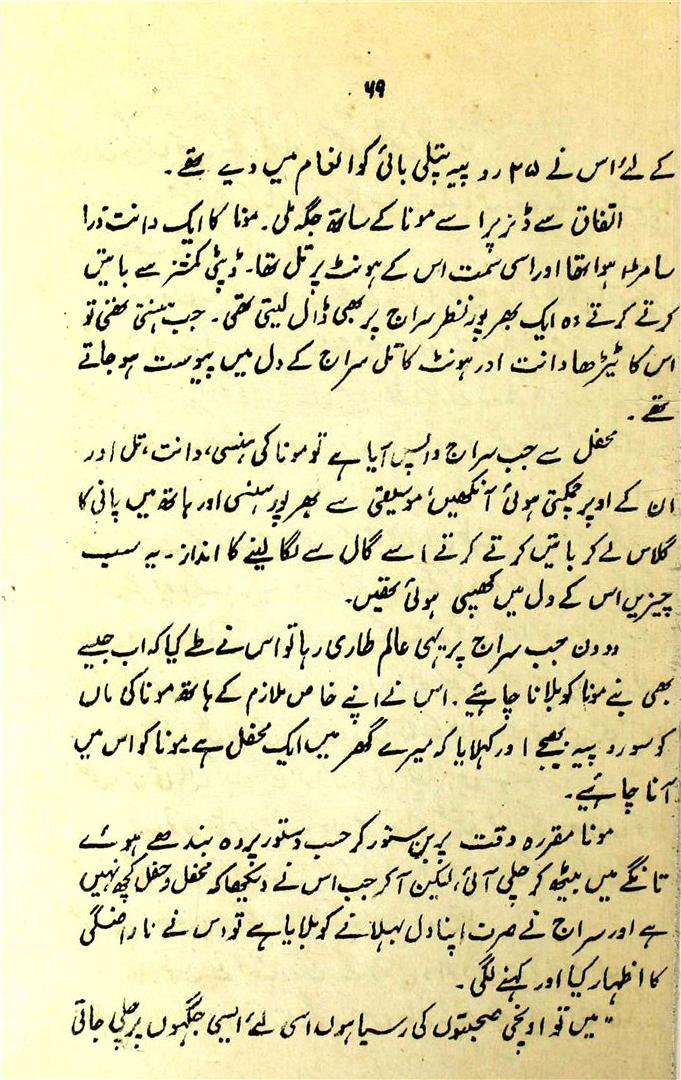 ۶۹
کے لئے اس نے ۲۵ روپیہ پتلی بائی کو انعام میں دیے تھے۔
اتفاق سے ڈنر پر اسے مونا کے ساتھ جگہ ملی۔ مونا کا ایک دانت ذرا
سا مڑا ہوا تھا اور اسی سمت اس کے ہونٹ پر تل تھا۔ ڈپٹی کمشنر سے باتیں
کرتے کرتے وہ ایک بھرپور نظر سراج پر بھی ڈال لیتی تھی۔ جب ہنستی تھی تو
اس کا ٹیڑھا دانت اور ہونٹ کا تل سراج کے دل میں پیوست ہو جاتے
تھے۔
محفل سے جب سراج واپس آیا ہے تو مونا کی ہنسی، دانت، تل اور
ان کے اوپر چمکتی ہوئی آنکھیں، موسیقی سے بھرپور ہنسی اور ہاتھ میں پانی کا
گلاس لے کر باتیں کرتے کرتے اسے گال سے لگا لینے کا انداز۔ یہ سب
چیزیں اس کے دل میں کھپی ہوئی تھیں۔
دو دن جب سراج پر یہی عالم طاری رہا تو اس نے طے کیا کہ اب جیسے
بھی بنے مونا کو بلانا چاہئیے۔ اس نے اپنے خاص ملازم کے ہاتھ مونا کی ماں
کو سو روپیہ بھیجے اور کہلایا کہ میرے گھر میں ایک محفل ہے مونا کو اس میں
آنا چاہئیے۔
مونا مقررہ وقت پر بن سنور کر حسب دستور پردہ بندھے ہوئے
تانگے میں بیٹھ کر چلی آئی، لیکن آ کر جب اس نے دیکھا کہ محفل وحفل کچھ نہیں
ہے اور سراج نے صرف اپنا دل بہلانے کو بلایا ہے تو اس نے ناراضگی
کا اظہار کیا اور کہنے لگی۔
"میں تو اونچی صحبتوں کی رسیا ہوں اسی لئے ایسی جگہوں پر چلی جاتی